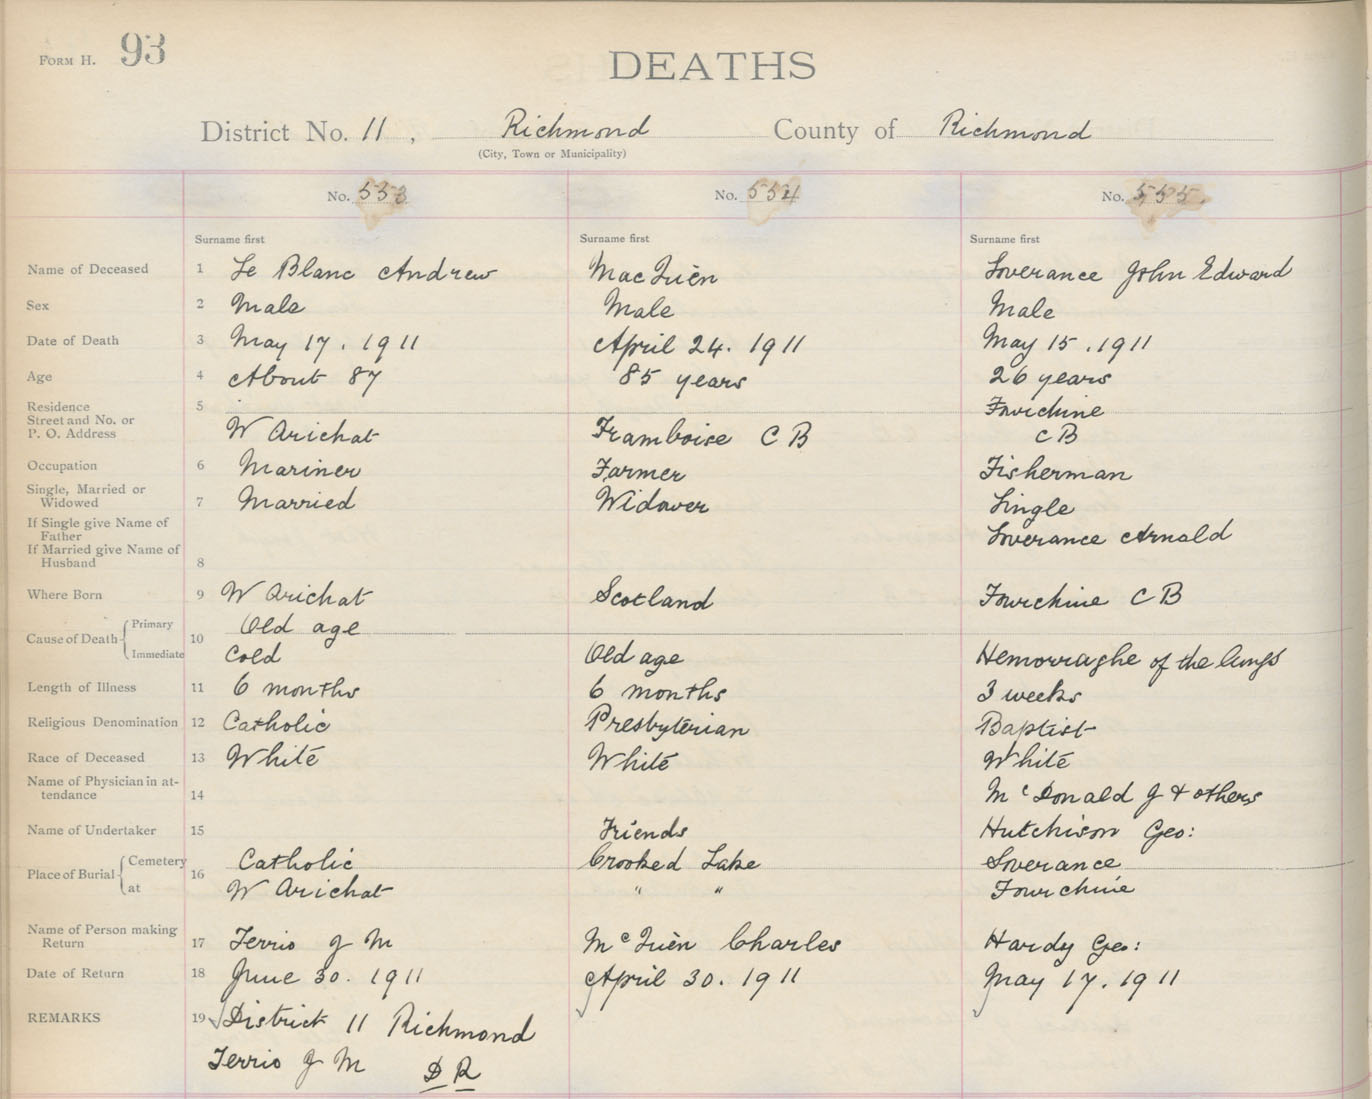 FORM H. 93
DEATHS
District No. 11, Richmond County of Richmond
(City, Town or Municipality)
No. 553 No. 554 No. 555
Surname first Surname first Surname first
Name of Deceased 1 Le Blanc Andrew MacQuèn Loverance John Edward
Sex 2 Male Male Male
Date of Death 3 May 17. 1911 April 24. 1911 May 15. 1911
Age 4 About 87 85 years 26 years
Residence 5 Fourchine
Street and No. or
P. O. Address W Arichat Framboise C B C B
Occupation 6 Mariner Farmer Fisherman
Single, Married or
Widowed 7 Married Widower Single
If Single give Name of
Father Loverance Arnald
If Married give Name of
Husband 8
Where Born 9 W Arichat Scotland Fourchine C B
Primary Old age
Cause of Death 10
Immediate Cold Old age Hemorraghe of the lungs
Length of Illness 11 6 months 6 months 3 weeks
Religious Denomination 12 Catholic Presbyterian Baptist
Race of Deceased 13 White White White
Name of Physician in at-
tendance 14 McDonald J & others
Name of Undertaker 15 Friends Hutchison Geo:
Cemetery Catholic Crooked Lake Loverance
Place of Burial 16
at W Arichat " " Fourchine
Name of Person making
Return 17 Terrio J M McQuèn Charles Hardy Geo:
Date of Return 18 June 30. 1911 April 30. 1911 May 17. 1911
REMARKS 19 District 11 Richmond
Terrio J M D R